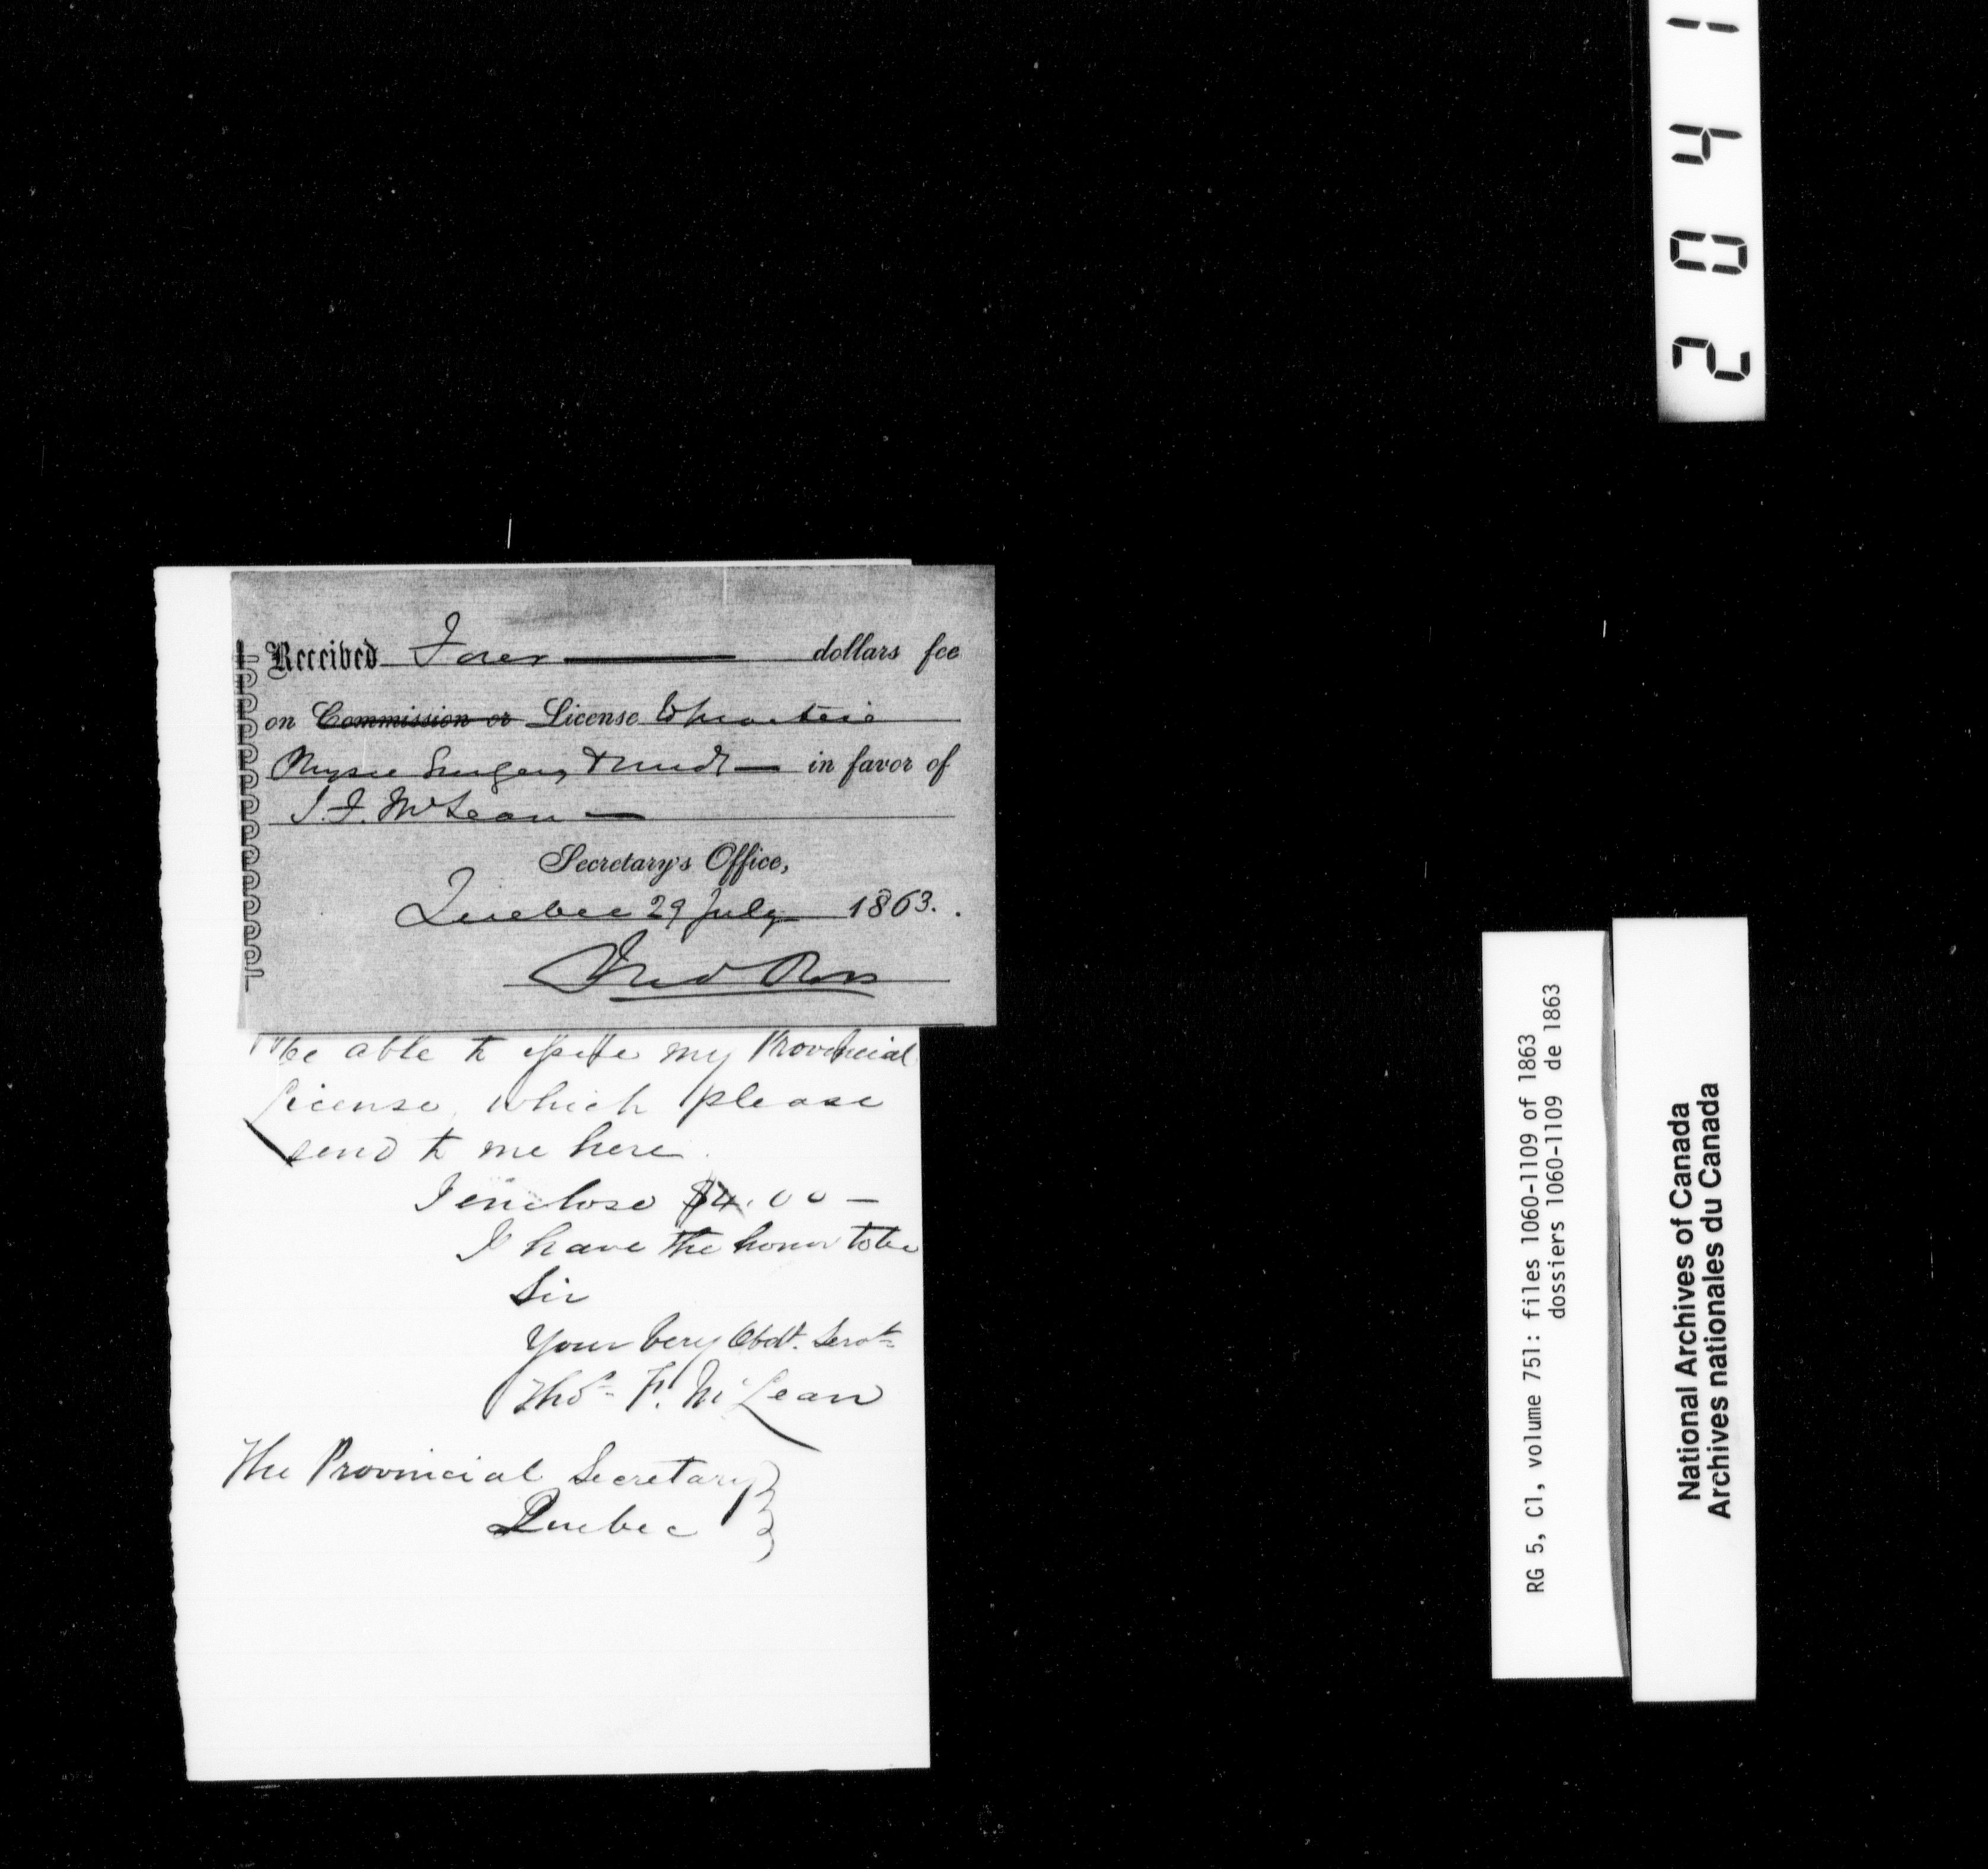 Received Four dollars fee
on Commission or License to practice
Physic Surgery & Mid in favor of
T. F. McLean
Secretary's Office,
Quebec 29 July 1863.
Fred Ross
be able to my Provincial
License, which please
send to me here.
I enclose $4.00 —
I have the honor to be
Sir
Your Very Obdt. Servt
Thos. F. McLean
The Provincial Secretary
Quebec
2041
RG 5, C1, volume 751: files 1060-1109 of 1863
dossiers 1060-1109 de 1863
National Archives of Canada
Archives nationales du Canada